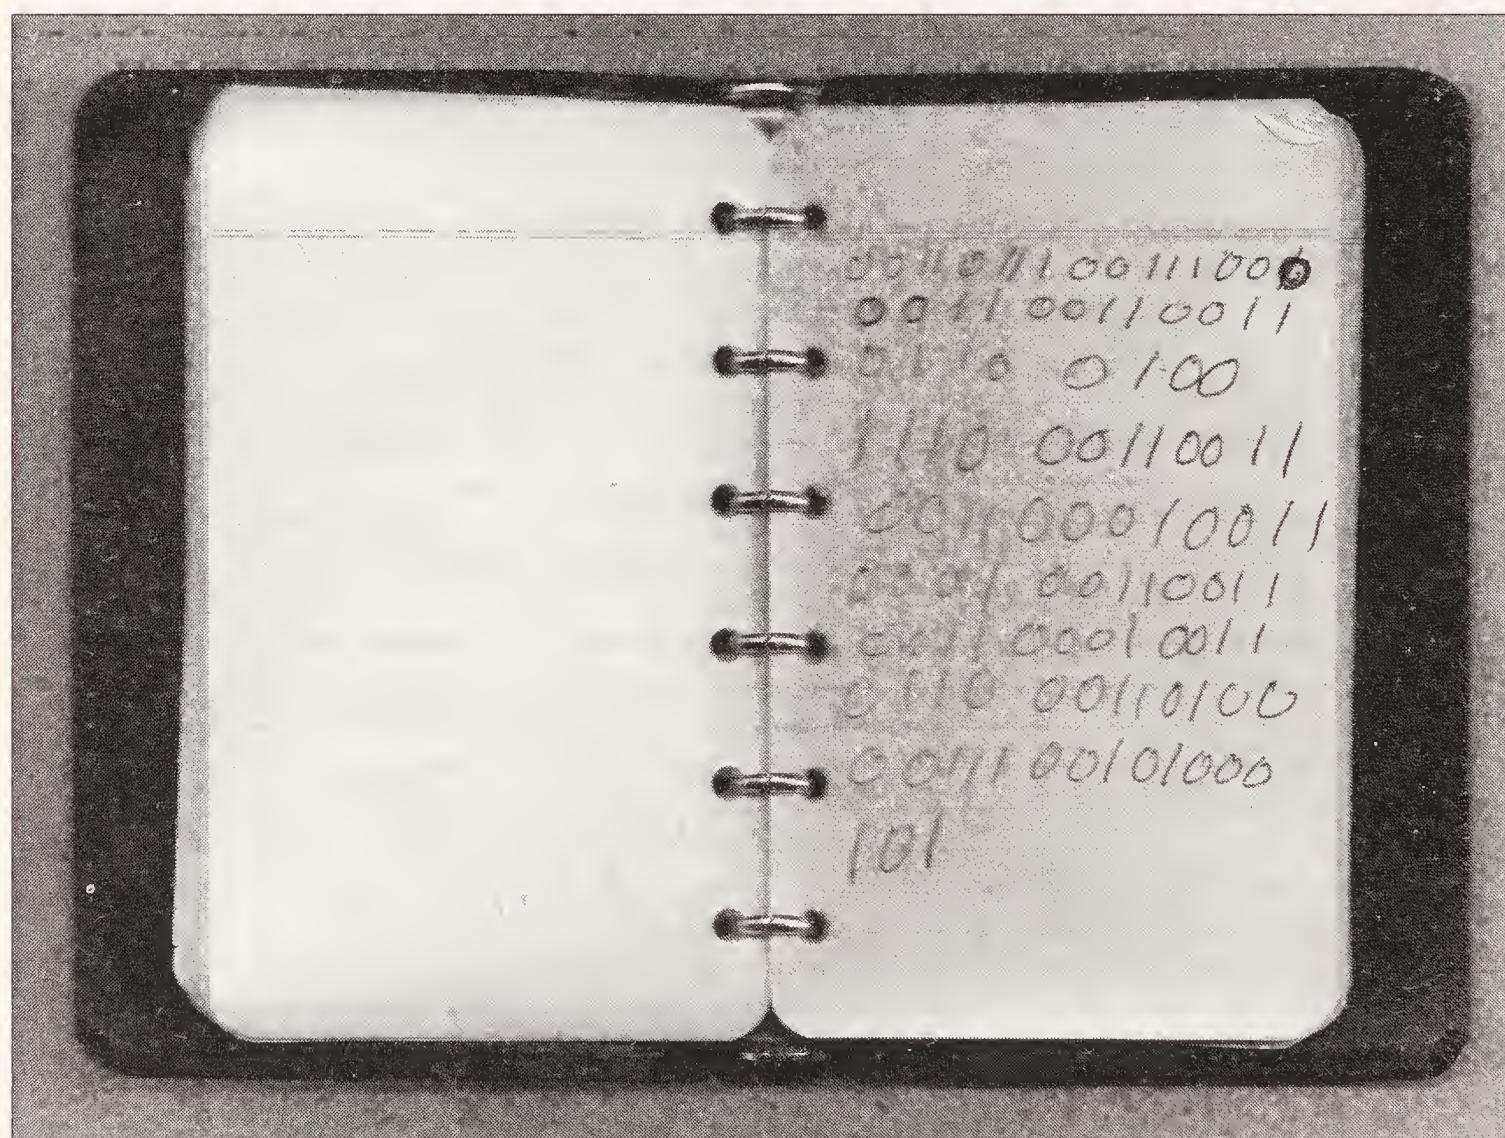 0011011100111000
0011 00110011
0110 0100
1110 00110011
0011 00010011
0001 00110011
0011 0001 0011
0110 00110100
0011 00101000
101